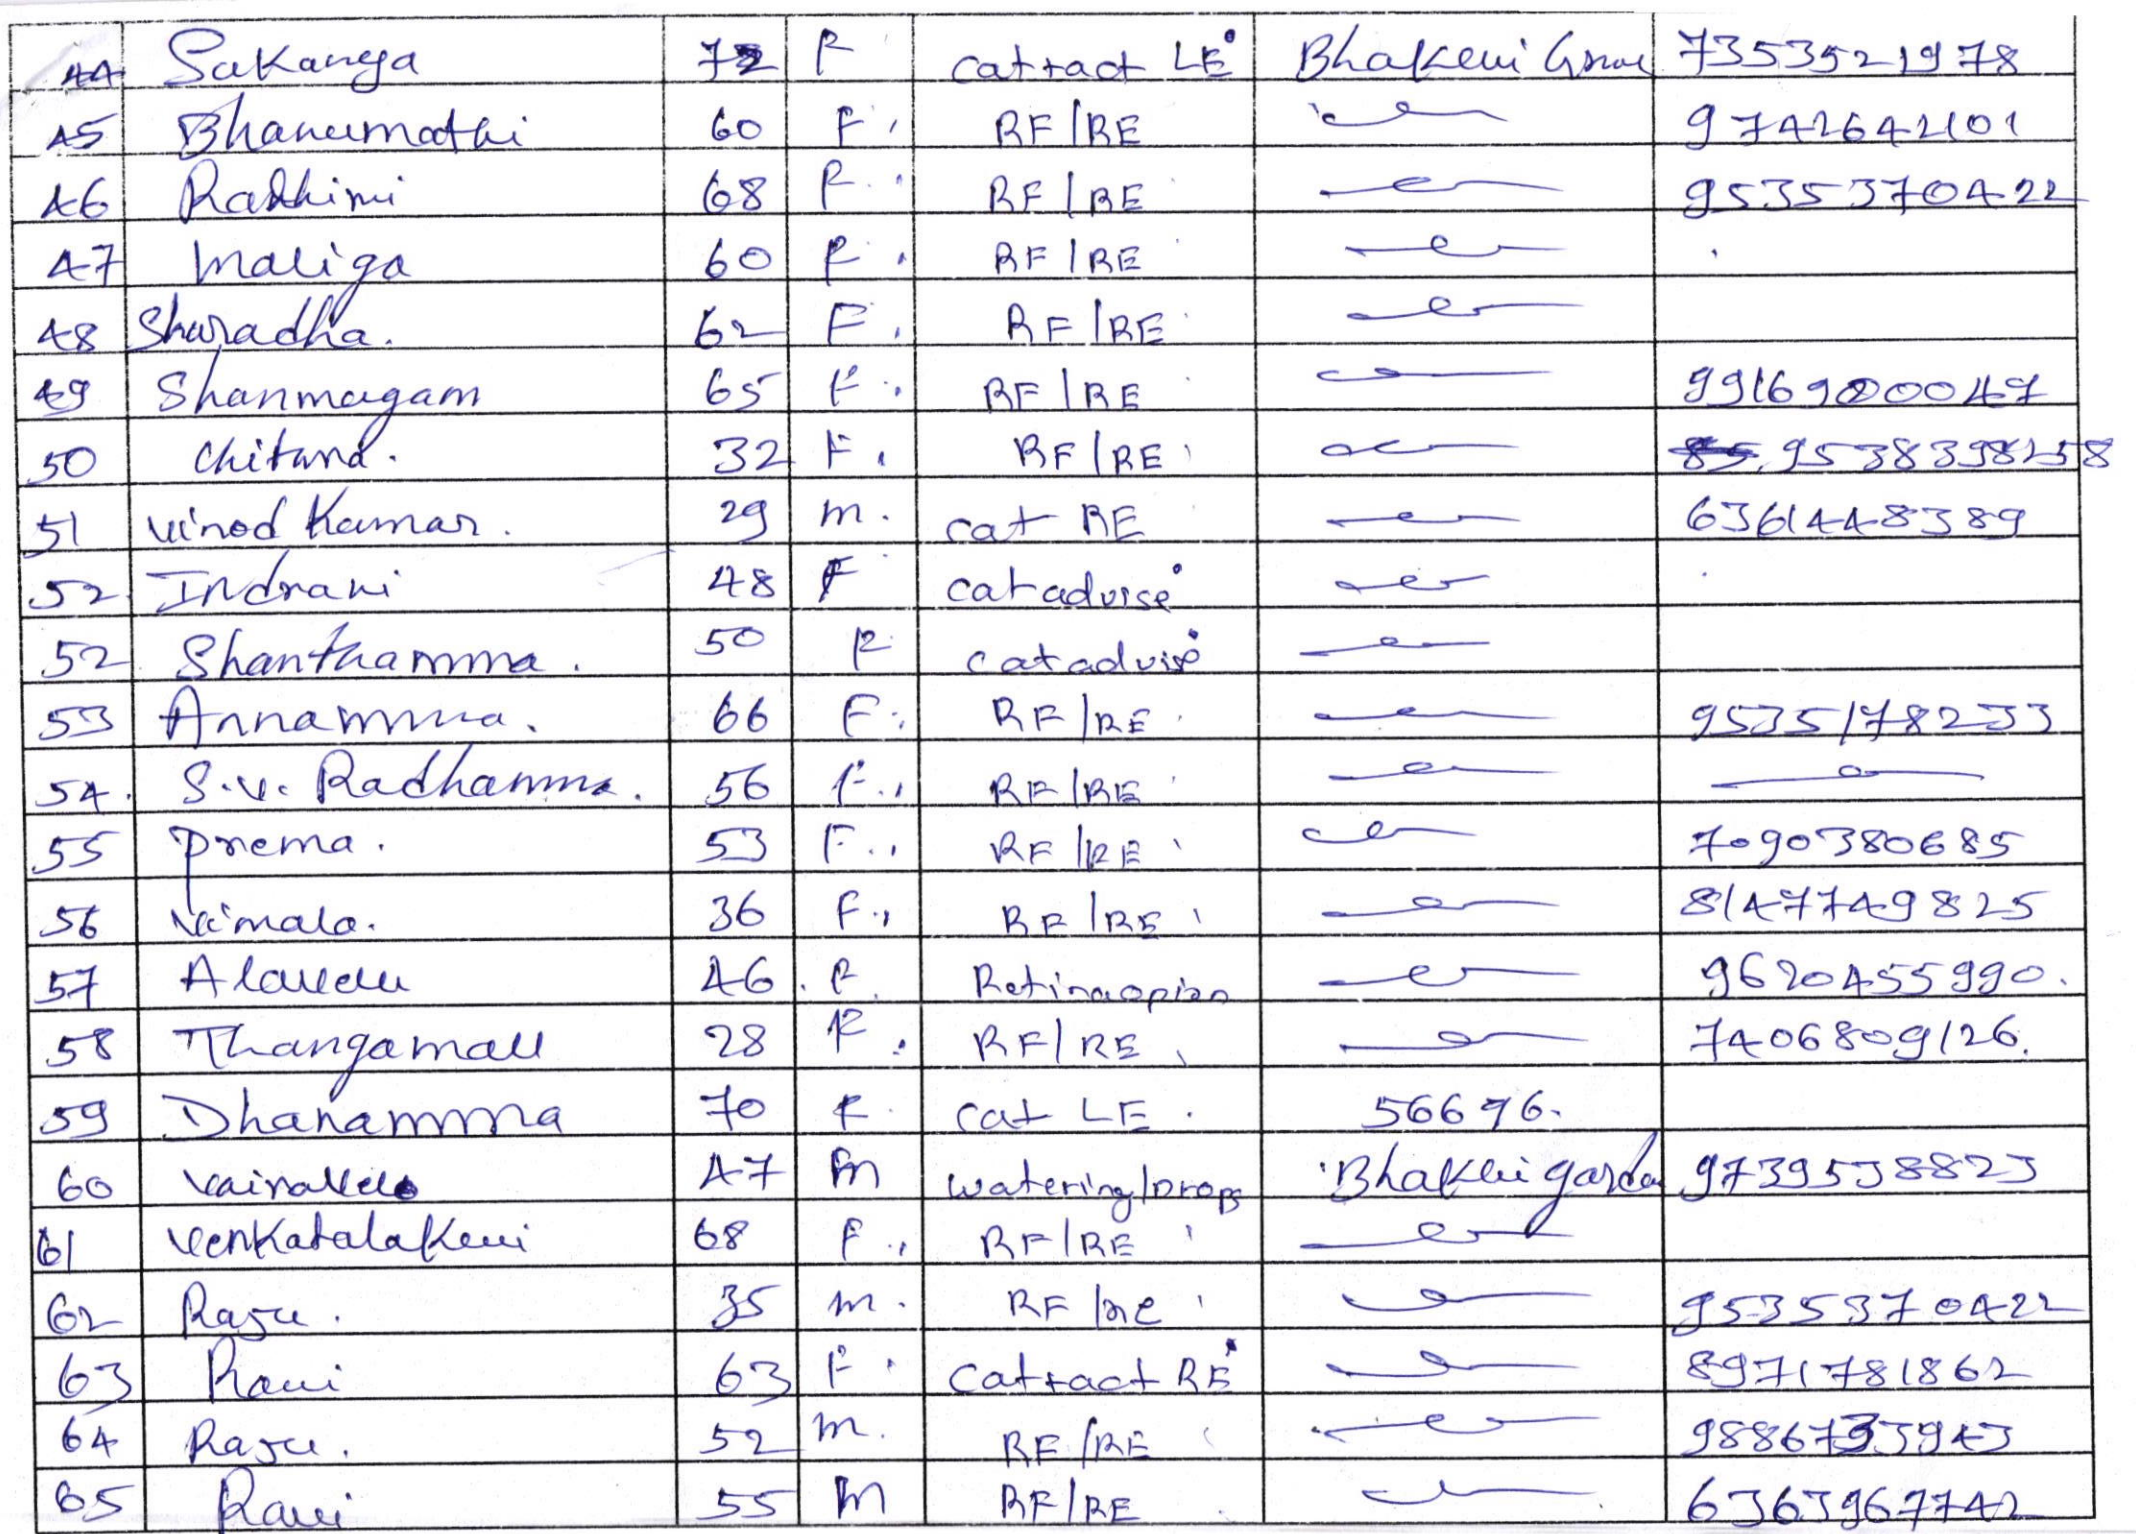 44 Sakanga 72 F catract LE Bhakeui 7353521978
45 Bhanumathi 60 F RF/RE 9742642101
46 Radhini 68 F RF/RE 9535370422
47 Maliga 60 F RF/RE
48 Sharadha. 62 F. RF/RE
49 Shanmagam 65 F. RF/RE 9916920047
50 Chitand. 32 F. RF/RE 9538398258
51 Vinod Kumar. 29 m. cat RE 6361448389
52 Indrani 48 F cat advise
52 Shanthamma. 50 F cat advise
53 Annamma. 66 F. RF/RE 9535178233
54. S.V. Radhamma. 56 F. RF/RE
55 Prema. 53 F. RF/RE 7090380685
56 Vimala. 36 F. RF/RE 8147749825
57 Alavelu 46 F Retina opion 9620455990.
58 Thangamall 28 F. RF/RE 7406809126.
59 Dhanamma 70 F cat LE. 56696.
60 47 M watering/Drops Bhakeui garden 9739538823
61 Venkatalakeui 68 F. RF/RE
62 Raju. 35 m. RF/RE 9535370422
63 Rani 63 F. Catract RE 8971781862
64 Raju. 52 m. RF/RE 9886733943
65 Ravi 55 M RF/RE 6363967742